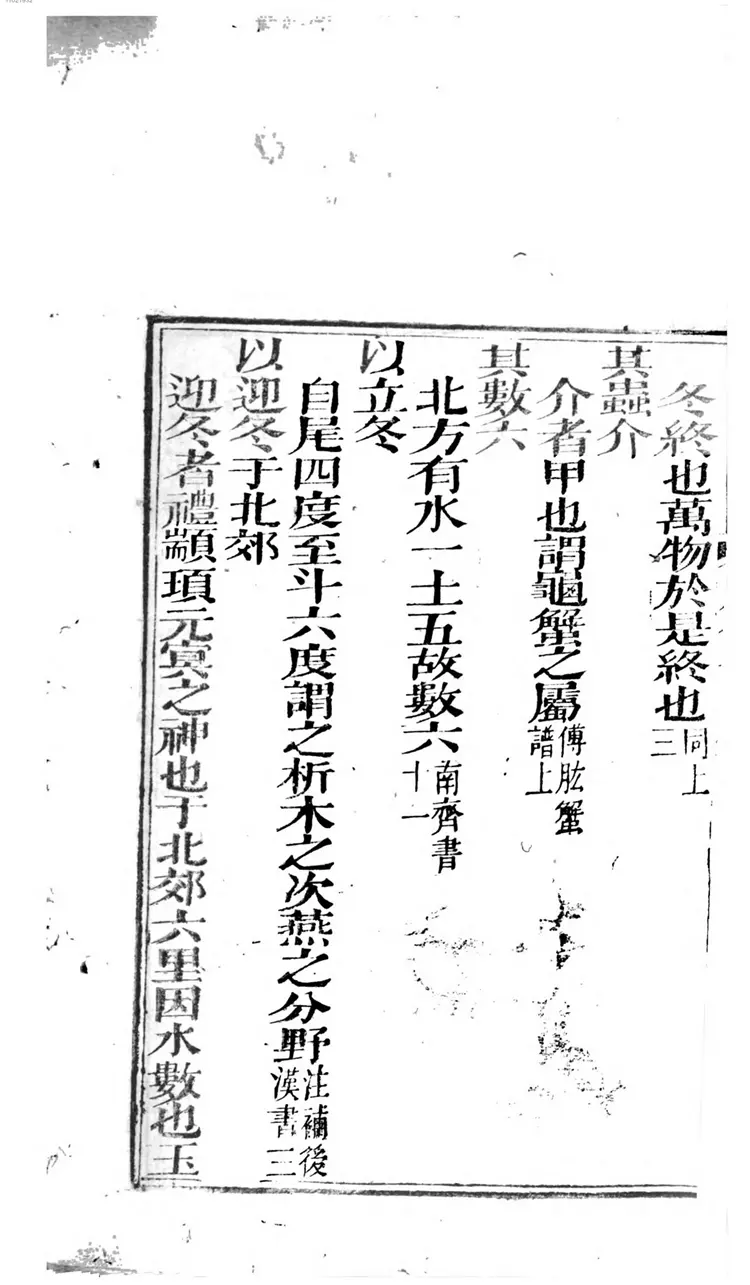 冬終也萬物於是終也同上三
其蟲介
介者甲也謂龜蟹之屬傅肱蟹譜上
其數六
北方有水一土五故數六南齊書十一
以立冬
自尾四度至斗六度謂之析木之次燕之分野注補後漢書三
以迎冬于北郊
迎冬者禮顓頊元冥之神也于北郊六里因水數也玉